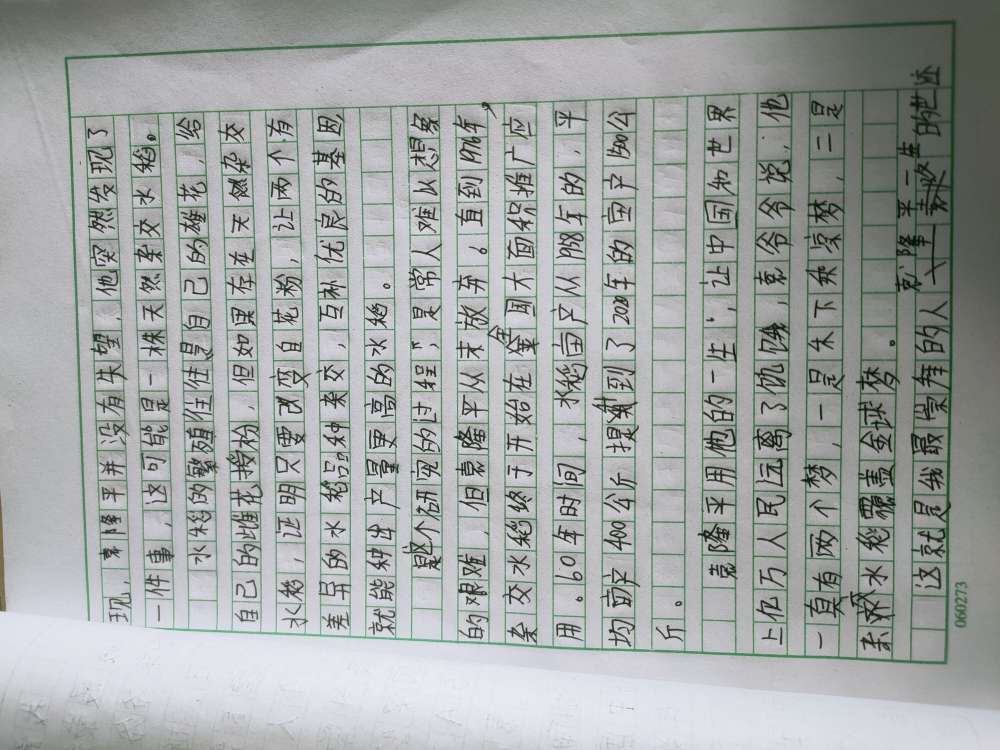 现，袁隆平并没有失望，他突然发现了
一件事，这可能是一株天然杂交水稻。
水稻的繁殖往往是自己的雄花，给
自己的雌花授粉，但如果存在天然杂交
水稻，证明只要改变自花粉，让两个有
差异的水稻品种杂交，互补优良的基因，
就能种出产量更高的水稻。
整个研究的过程，是常人难以想象
的艰难，但袁隆平从未放弃。直到1976年，
杂交水稻终于开始在全国大面积推广应
用。60年时间，水稻亩产从1958年的，平
均亩产400公斤提到了2020年的亩产1500公
斤。
袁隆平用他的一生，让中国和世界
上亿万人民远离了饥饿，袁爷爷说：他
一真有两个梦，一是禾下乘凉梦，二是
杂交水稻覆盖全球梦。
这就是我最崇拜的人——袁隆平
袁隆平一生的艺迹
060273